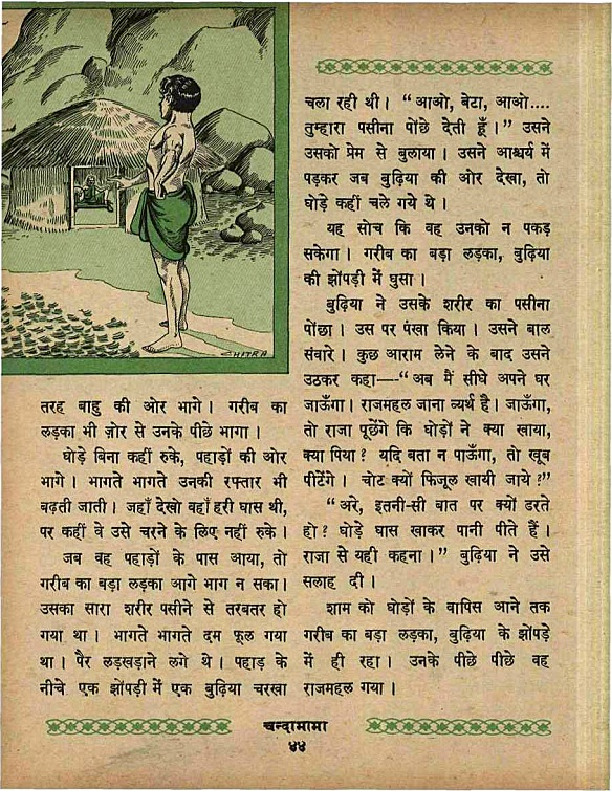 CHITRA
तरह बाहु की ओर भागे। गरीब का
लड़का भी ज़ोर से उनके पीछे भागा।
घोड़े बिना कहीं रुके, पहाड़ों की ओर
भागे। भागते भागते उनकी रफ्तार भी
बढ़ती जाती। जहाँ देखो वहाँ हरी घास थी,
पर कहीं वे उसे चरने के लिए नहीं रुके।
जब वह पहाड़ों के पास आया, तो
गरीब का बड़ा लड़का आगे भाग न सका।
उसका सारा शरीर पसीने से तरबतर हो
गया था। भागते भागते दम फूल गया
था। पैर लड़खड़ाने लगे थे। पहाड़ के
नीचे एक झोंपड़ी में एक बुढ़िया चरखा
चला रही थी। "आओ, बेटा, आओ....
तुम्हारा पसीना पोंछे देती हूँ।" उसने
उसको प्रेम से बुलाया। उसने आश्चर्य में
पड़कर जब बुढ़िया की ओर देखा, तो
घोड़े कहीं चले गये थे।
यह सोच कि वह उनको न पकड़
सकेगा। गरीब का बड़ा लड़का, बुढ़िया
की झोंपड़ी में घुसा।
बुढ़िया ने उसके शरीर का पसीना
पोंछा। उस पर पंखा किया। उसने बाल
संवारे। कुछ आराम लेने के बाद उसने
उठकर कहा—"अब मैं सीधे अपने घर
जाऊँगा। राजमहल जाना व्यर्थ है। जाऊँगा,
तो राजा पूछेंगे कि घोड़ों ने क्या खाया,
क्या पिया? यदि बता न पाऊँगा, तो खूब
पीटेंगे। चोट क्यों फिजूल खायी जाये?"
"अरे, इतनी-सी बात पर क्यों डरते
हो? घोड़े घास खाकर पानी पीते हैं।
राजा से यही कहना।" बुढ़िया ने उसे
सलाह दी।
शाम को घोड़ों के वापिस आने तक
गरीब का बड़ा लड़का, बुढ़िया के झोंपड़े
में ही रहा। उनके पीछे पीछे वह
राजमहल गया।
चन्दामामा
४४